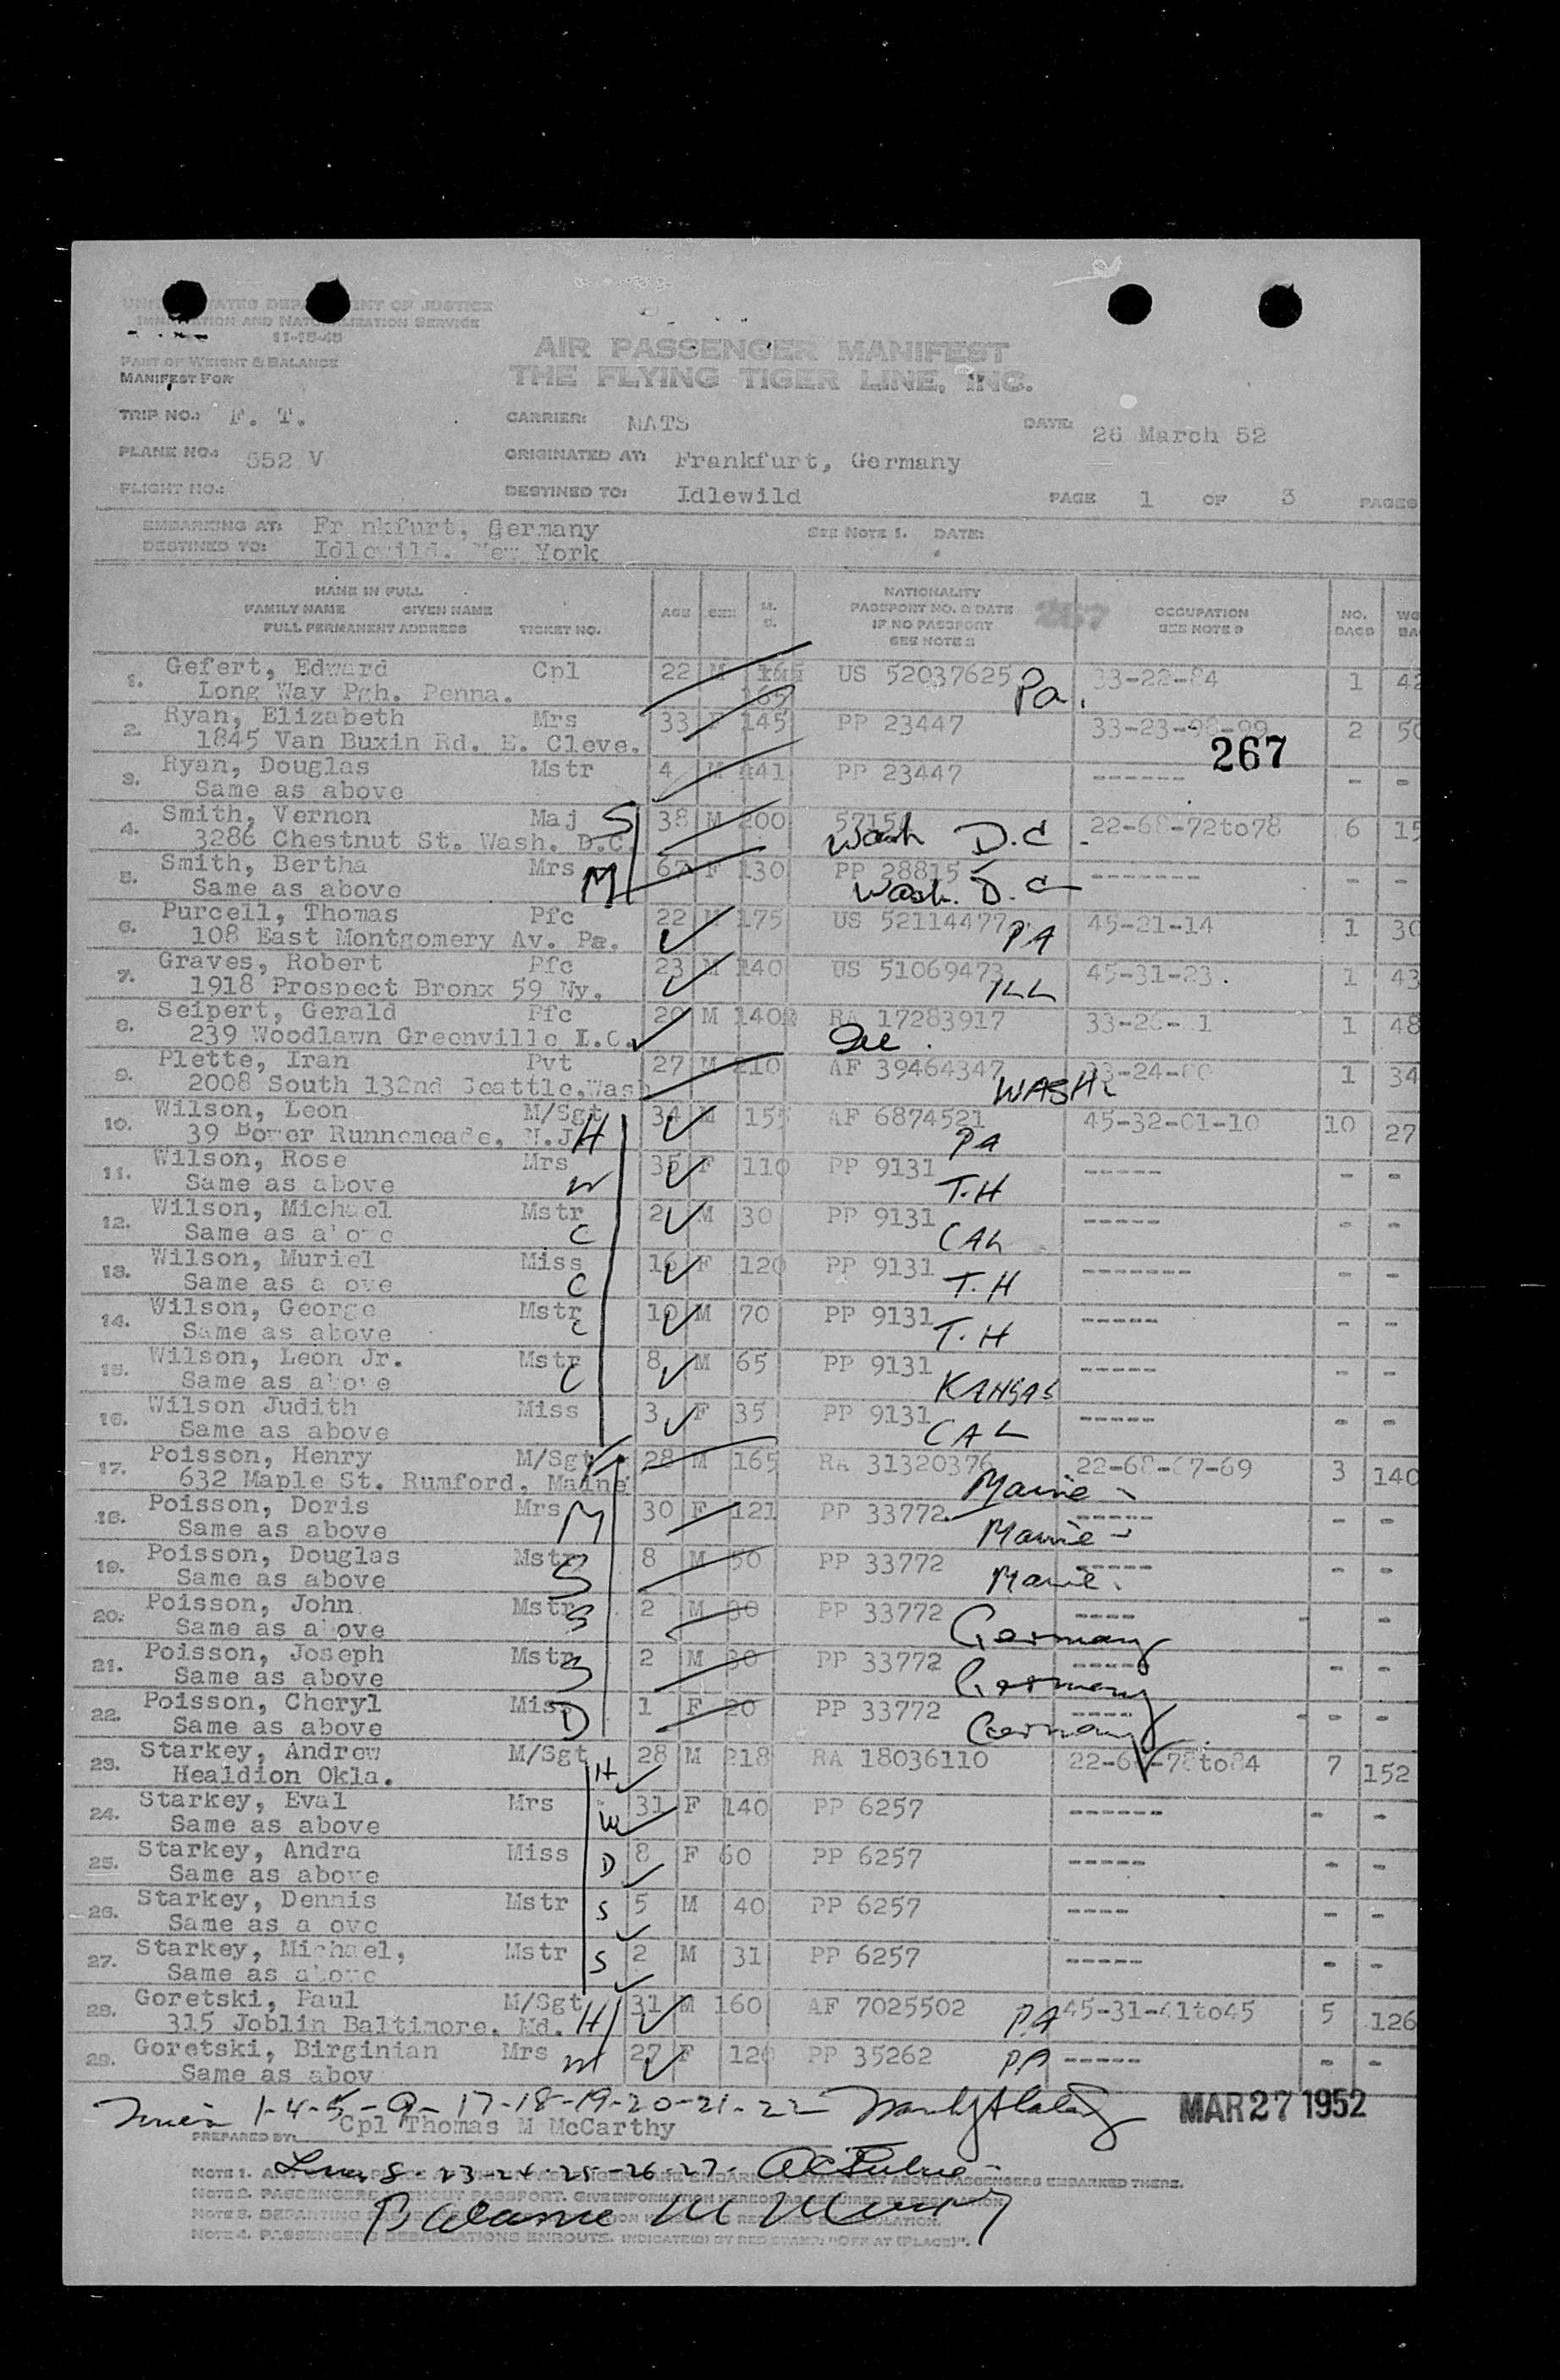 UNITED STATES DEPARTMENT OF JUSTICE
IMMIGRATION AND NATURALIZATION SERVICE
11-15-48
PART OF WEIGHT & BALANCE
MANIFEST FOR
AIR PASSENGER MANIFEST
THE FLYING TIGER LINE, INC.
TRIP NO.: F. T. CARRIER: MATS DATE: 26 March 52
PLANE NO.: 552 V ORIGINATED AT: Frankfurt, Germany
FLIGHT NO.: DESTINED TO: Idlewild PAGE 1 OF 3 PAGES
EMBARKING AT: Fr nkfurt, Germany SEE NOTE 1. DATE:
DESTINED TO: Idlewild. New York
NAME IN FULL
FAMILY NAME GIVEN NAME
FULL PERMANENT ADDRESS TICKET NO. AGE SEX NATIONALITY PASSPORT NO. & DATE IF NO PASSPORT SEE NOTE 2 267 OCCUPATION SEE NOTE 3 NO. BAGS
1. Gefert, Edward Cpl 22 M 165 US 52037625 Pa. 33-22-84 1 42
Long Way Pgh. Penna.
2. Ryan, Elizabeth Mrs 33 F 145 PP 23447 33-23-98-99 2 50
1845 Van Buxin Rd. E. Cleve. 267
3. Ryan, Douglas Mstr 4 M 41 PP 23447 ------ - -
Same as above
4. Smith, Vernon Maj S 38 M 200 5715 Wash D.C. 22-68-72to78 6 15
3286 Chestnut St. Wash. D.C.
5. Smith, Bertha Mrs M 67 F 130 PP 28815 Wash. D.C. ------- - -
Same as above
6. Purcell, Thomas Pfc 22 M 175 US 52114477 PA 45-21-14 1 30
108 East Montgomery Av. Pa.
7. Graves, Robert Pfc 23 M 140 US 51069473 ILL 45-31-23. 1 43
1918 Prospect Bronx 59 Ny.
8. Seipert, Gerald Pfc 20 M 140 RA 17283917 33-26- 1 1 48
239 Woodlawn Greenville
9. Plette, Iran Pvt 27 M 210 AF 39464347 WASH. 33-24-00 1 34
2008 South 132nd Seattle,Wash
10. Wilson, Leon M/Sgt H 34 M 155 AF 6874521 PA 45-32-01-10 10 27
39 Bower Runnemeade, N.J.
11. Wilson, Rose Mrs W 35 F 110 PP 9131 T.H ----- - -
Same as above
12. Wilson, Michael Mstr C 2 M 30 PP 9131 CAL ----- - -
Same as a ove
13. Wilson, Muriel Miss C 16 F 120 PP 9131 T.H ------- - -
Same as a ove
14. Wilson, George Mstr C 10 M 70 PP 9131 T.H ----- - -
Same as above
15. Wilson, Leon Jr. Mstr C 8 M 65 PP 9131 KANSAS ----- - -
Same as above
16. Wilson Judith Miss 3 F 35 PP 9131 CAL ----- - -
Same as above
17. Poisson, Henry M/Sgt 28 M 165 RA 31320376 Maine 22-68-67-69 3 140
632 Maple St. Rumford, Maine
18. Poisson, Doris Mrs M 30 F 121 PP 33772 Maine ----- - -
Same as above
19. Poisson, Douglas Mstr S 8 M 50 PP 33772 Maine ----- - -
Same as above
20. Poisson, John Mstr S 2 M 30 PP 33772 Germany ---- - -
Same as a ove
21. Poisson, Joseph Mstr S 2 M 30 PP 33772 Germany ----- - -
Same as above
22. Poisson, Cheryl Miss D 1 F 20 PP 33772 Germany ---- - -
Same as above
23. Starkey, Andrew M/Sgt H 28 M 218 RA 18036110 22-68-78to84 7 152
Healdion Okla.
24. Starkey, Eval Mrs W 31 F 140 PP 6257 ------ - -
Same as above
25. Starkey, Andra Miss D 8 F 60 PP 6257 ----- - -
Same as above
26. Starkey, Dennis Mstr S 5 M 40 PP 6257 ---- - -
Same as a ove
27. Starkey, Michael, Mstr S 2 M 31 PP 6257 ----- - -
Same as above
28. Goretski, Paul M/Sgt H 31 M 160 AF 7025502 PA 45-31-41to45 5 126
315 Joblin Baltimore. Md.
29. Goretski, Birginian Mrs W 27 F 120 PP 35262 PA ----- - -
Same as abov
1-4-5-9-17-18-19-20-21-22 MAR 27 1952
PREPARED BY: Cpl Thomas M McCarthy
8-23-24-25-26-27-
NOTE 1. PASSENGERS EMBARKED THERE.
NOTE 2. PASSENGERS WITHOUT PASSPORT. GIVE INFORMATION HEREON AS REQUIRED BY REGULATION.
NOTE 3. DEPARTING
NOTE 4. PASSENGERS DEBARKATIONS ENROUTE. INDICATE(D) BY RED STAMP: "OFF AT (PLACE)".